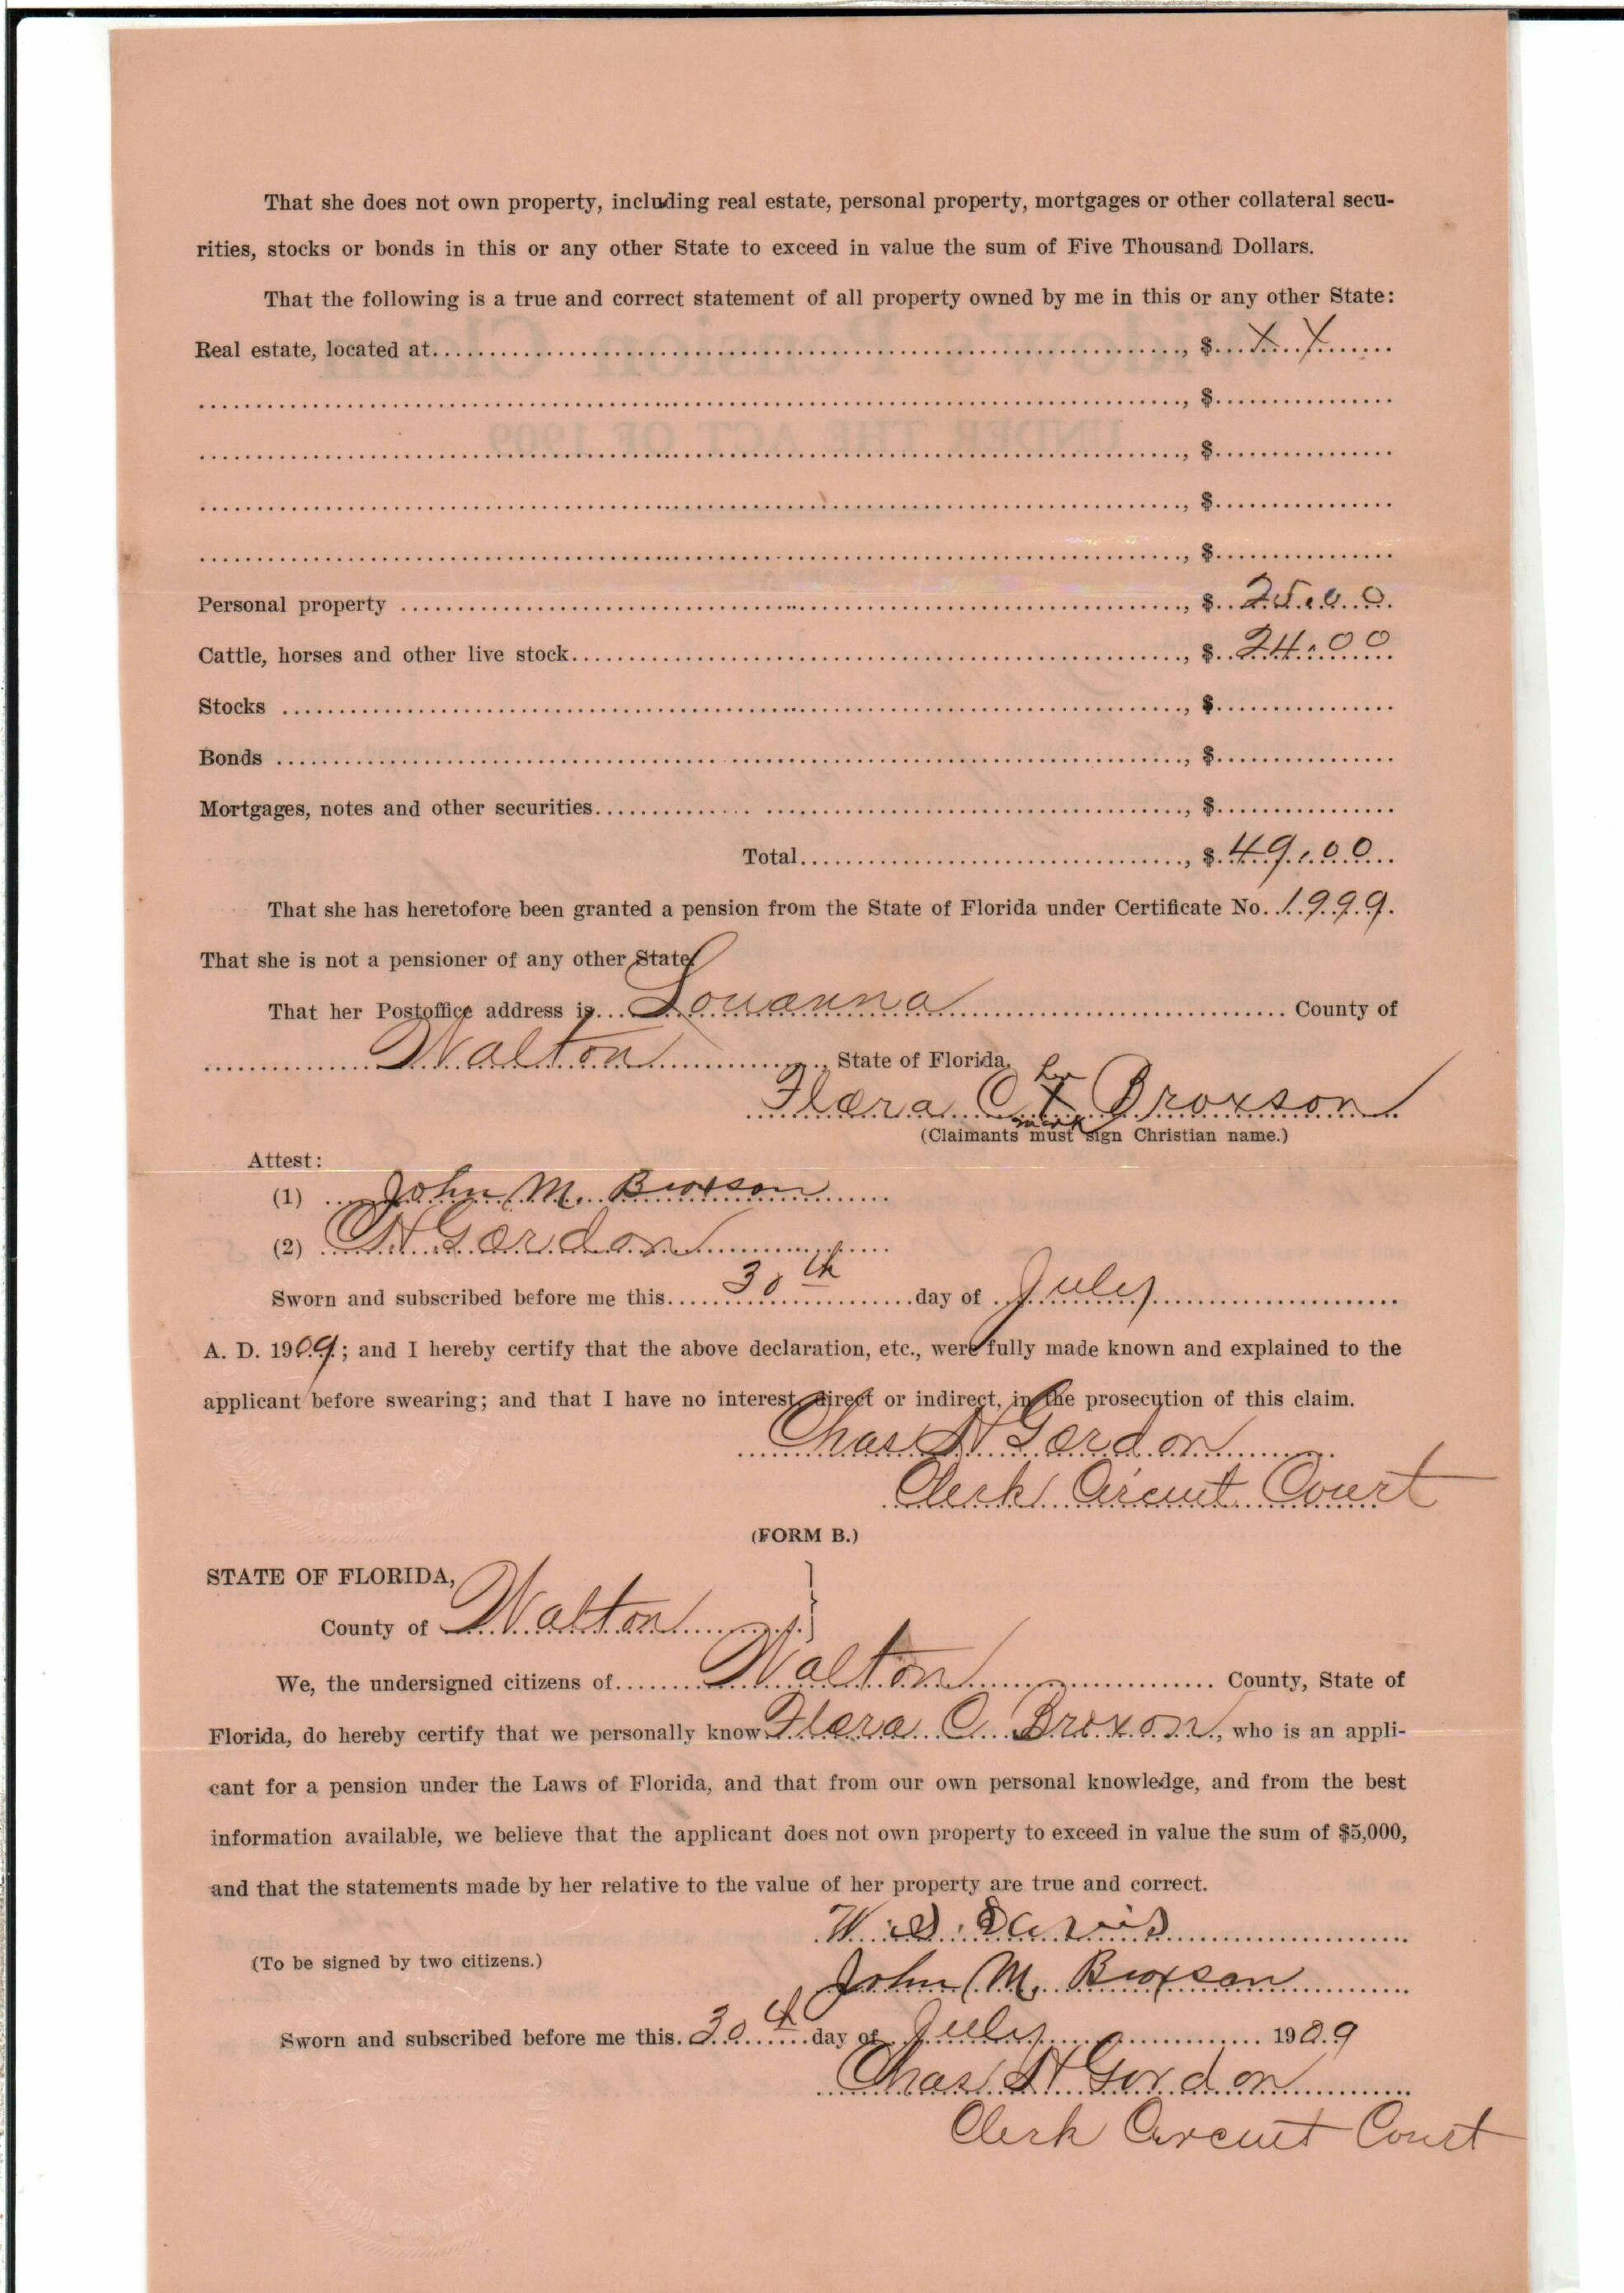 That she does not own property, including real estate, personal property, mortgages or other collateral secu-
rities, stocks or bonds in this or any other State to exceed in value the sum of Five Thousand Dollars.
That the following is a true and correct statement of all property owned by me in this or any other State:
Real estate, located at................, $ X X
................, $................
................, $................
................, $................
................, $................
Personal property ................, $ 25.00
Cattle, horses and other live stock................, $ 24.00
Stocks ................, $................
Bonds ................, $................
Mortgages, notes and other securities................, $................
Total................, $ 49.00
That she has heretofore been granted a pension from the State of Florida under Certificate No. 1999.
That she is not a pensioner of any other State.
That her Postoffice address is Louanna County of
Walton, State of Florida.
her
Flora C X Broxson
mark
(Claimants must sign Christian name.)
Attest:
(1) John M. Broxson
(2) C H Gordon
Sworn and subscribed before me this 30th day of July
A. D. 1909; and I hereby certify that the above declaration, etc., were fully made known and explained to the
applicant before swearing; and that I have no interest, direct or indirect, in the prosecution of this claim.
Chas H Gordon
Clerk Circuit Court
(FORM B.)
STATE OF FLORIDA,
County of Walton
We, the undersigned citizens of Walton County, State of
Florida, do hereby certify that we personally know Flora C Broxon, who is an appli-
cant for a pension under the Laws of Florida, and that from our own personal knowledge, and from the best
information available, we believe that the applicant does not own property to exceed in value the sum of $5,000,
and that the statements made by her relative to the value of her property are true and correct.
W. D. Davis
(To be signed by two citizens.)
John M. Broxson
Sworn and subscribed before me this 30th day of July 1909
Chas H Gordon
Clerk Circuit Court